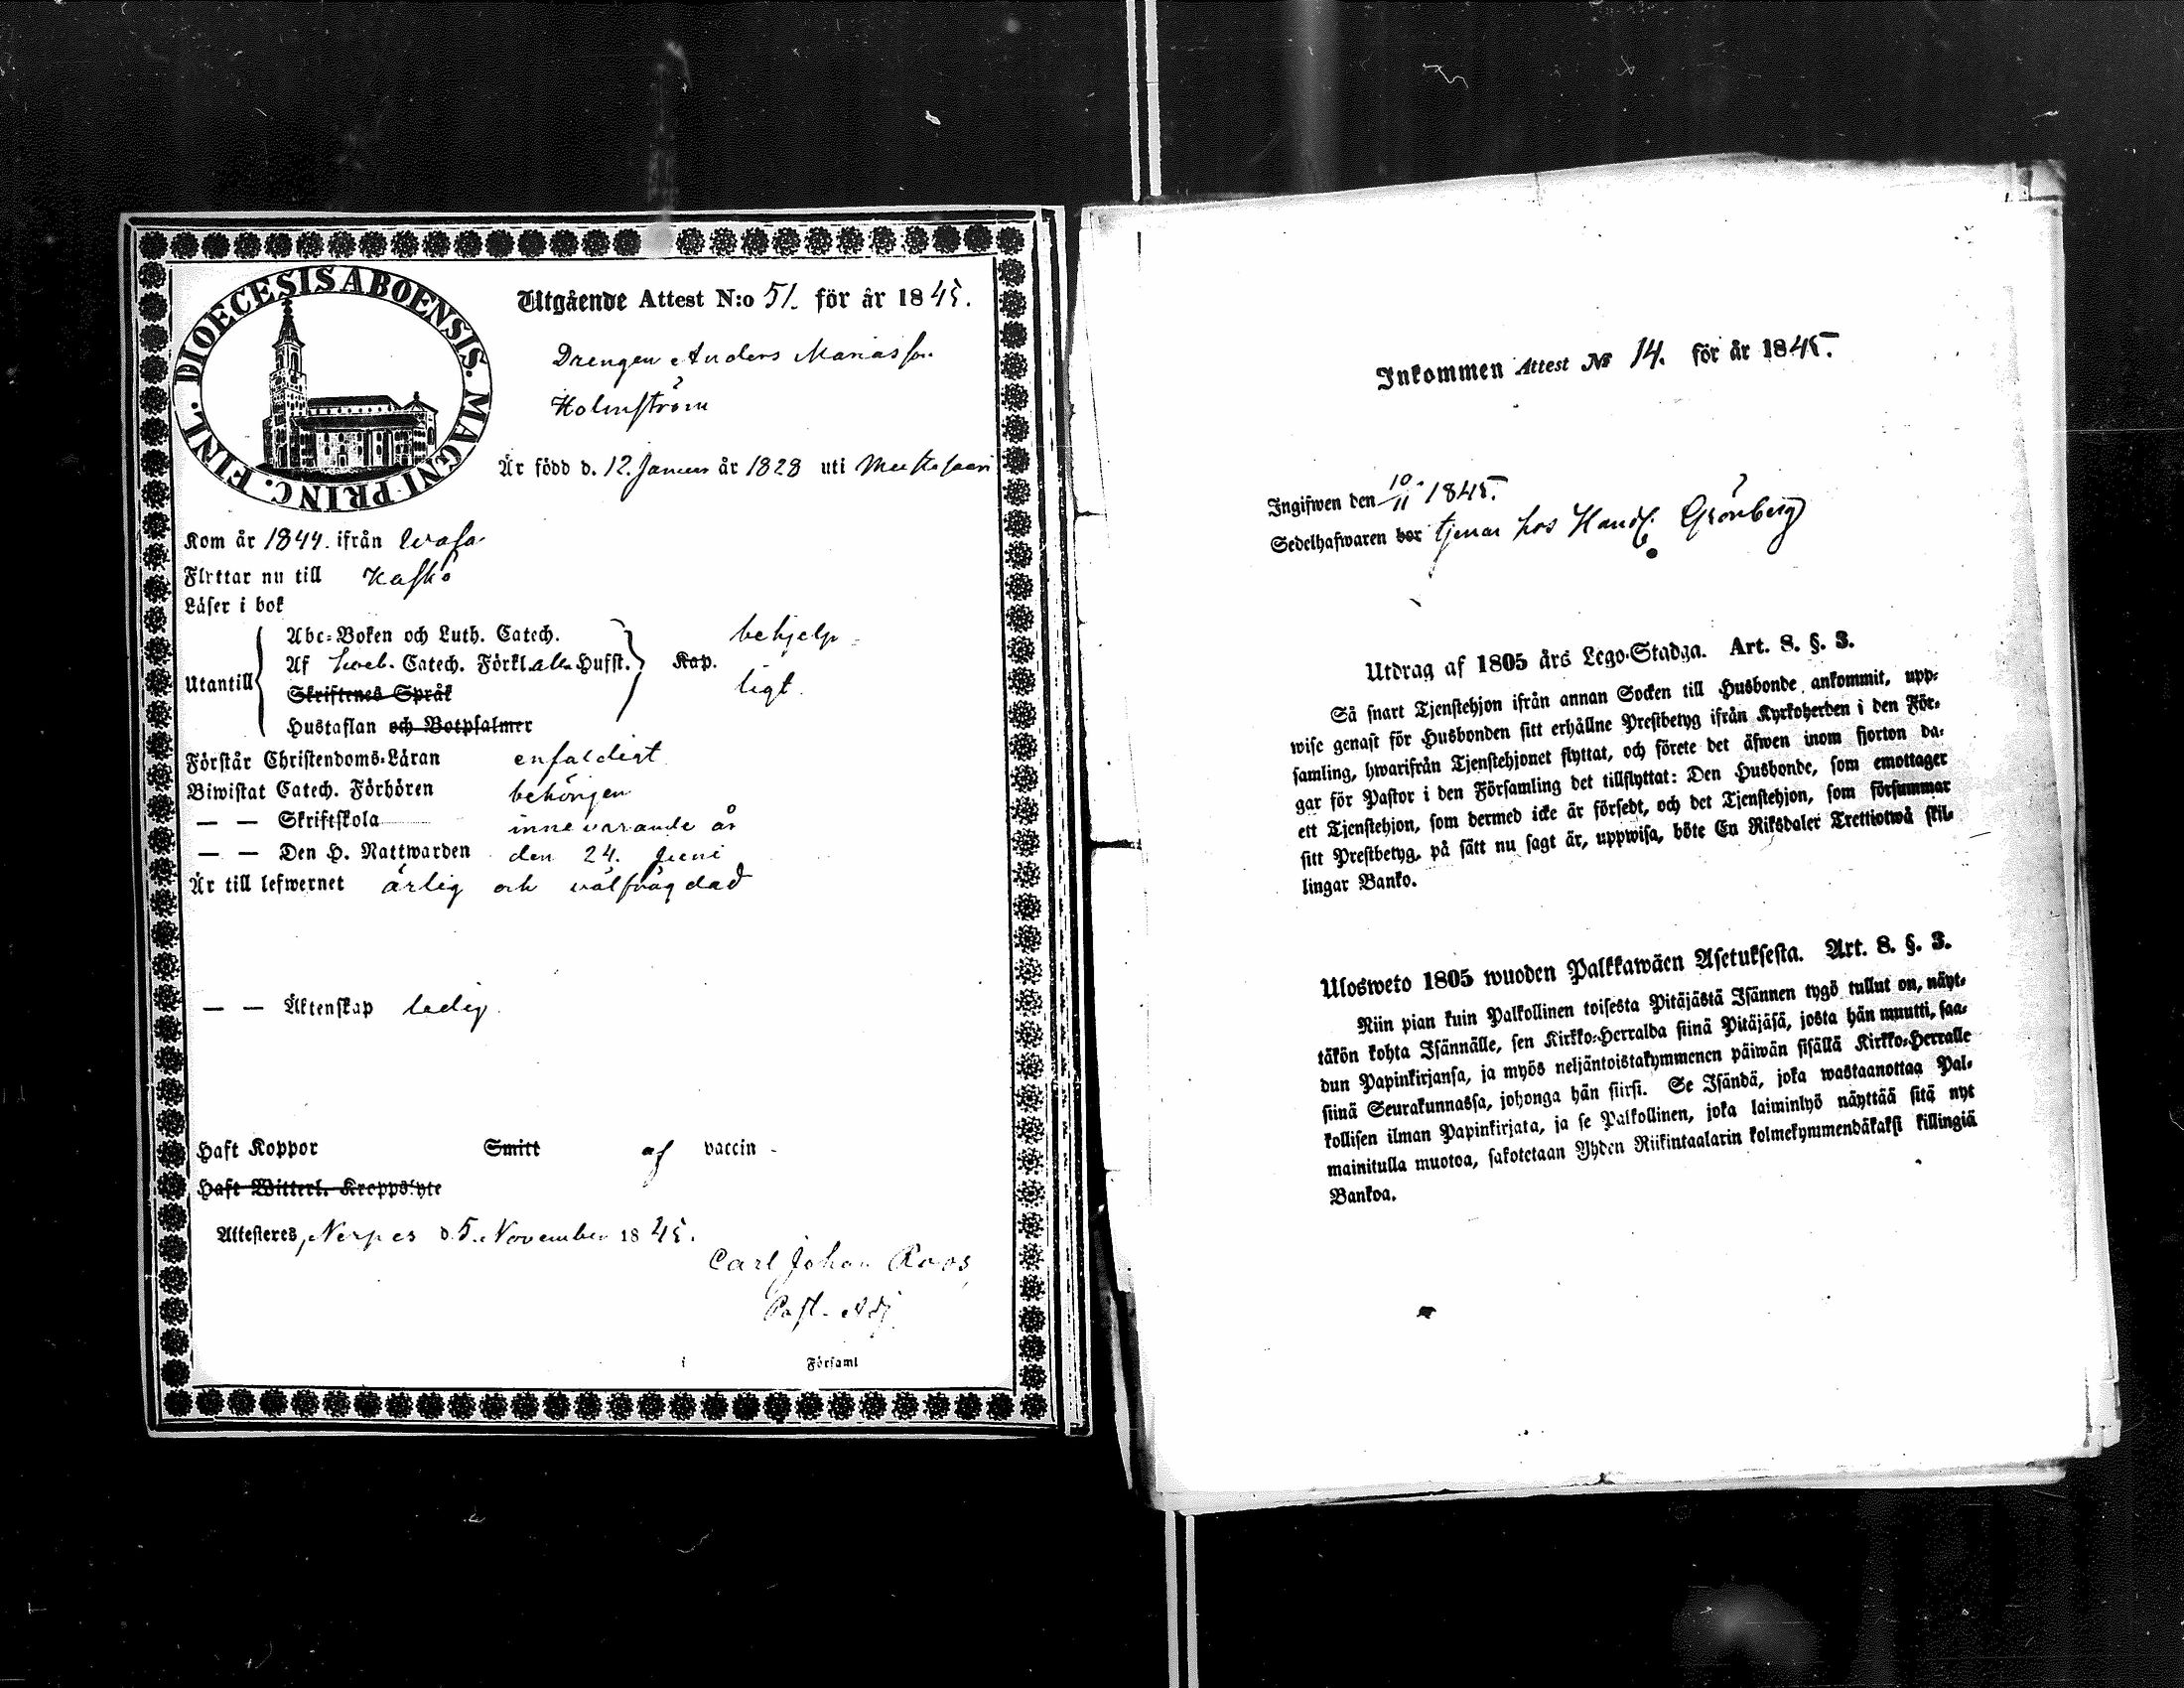 DIOECESIS ABOENSIS. MAGNI PRINC. FINL.
Utgående Attest N:o 51. för år 1845.
Drengen Anders Mariasson
Holmström
Är född d. 12. Januari år 1828 uti
Kom år 1844. ifrån Wasa
Flyttar nu till Kaskö
Läser i bok
Abc-Boken och Luth. Catech.
behjelp-
Af Sveb. Catech. Förkl. alla Husst. Kap.
Utantill
ligt.
Skriftenes Språk
Hustaflan och Botpsalmer
Förstår Christendoms-Läran enfaldigt
Biwistat Catech. Förhören behörigen
— — Skriftskola innevarande år
— — Den H. Nattwarden den 24. Juni
Är till lefwernet ärlig och välfrägdad
— — Äktenskap ledig.
Haft Koppor Smitt af vaccin-
Haft Witterl. Kroppslyte
Attesteres, Nerpes d. 5. November 1845.
Carl Johan Roos
Past. Adj.
i Församl
Inkommen Attest No 14. för år 1845.
Ingifwen den 10/11 1845.
Sedelhafwaren bor tjenar hos Handl. Grönberg
Utdrag af 1805 års Lego-Stadga. Art. 8. §. 3.
Så snart Tjenstehjon ifrån annan Socken till Husbonde ankommit, upp-
wise genast för Husbonden sitt erhållne Prestbetyg ifrån Kyrkoherden i den För-
samling, hwarifrån Tjenstehjonet flyttat, och förete det äfwen inom fjorton da-
gar för Pastor i den Församling det tillflyttat: Den Husbonde, som emottager
ett Tjenstehjon, som dermed icke är försedt, och det Tjenstehjon, som försummar
sitt Prestbetyg, på sätt nu sagt är, uppwisa, böte En Riksdaler Trettiotwå skil-
lingar Banko.
Ulosweto 1805 wuoden Palkkawäen Asetuksesta. Art. 8. §. 3.
Niin pian kuin Palkollinen toisesta Pitäjästä Isännen tygö tullut on, näyt-
täkön kohta Isännälle, sen Kirkko-Herralda siinä Pitäjäsä, josta hän muutti, saa-
dun Papinkirjansa, ja myös neljäntoistakymmenen päiwän sisällä Kirkko-Herralle
siinä Seurakunnassa, johonga hän siirsi. Se Isändä, joka wastaanottaa Pal-
kollisen ilman Papinkirjata, ja se Palkollinen, joka laiminlyö näyttää sitä nyt
mainitulla muotoa, sakotetaan Yhden Riikintaalarin kolmekymmendäkaksi killingiä
Bankoa.